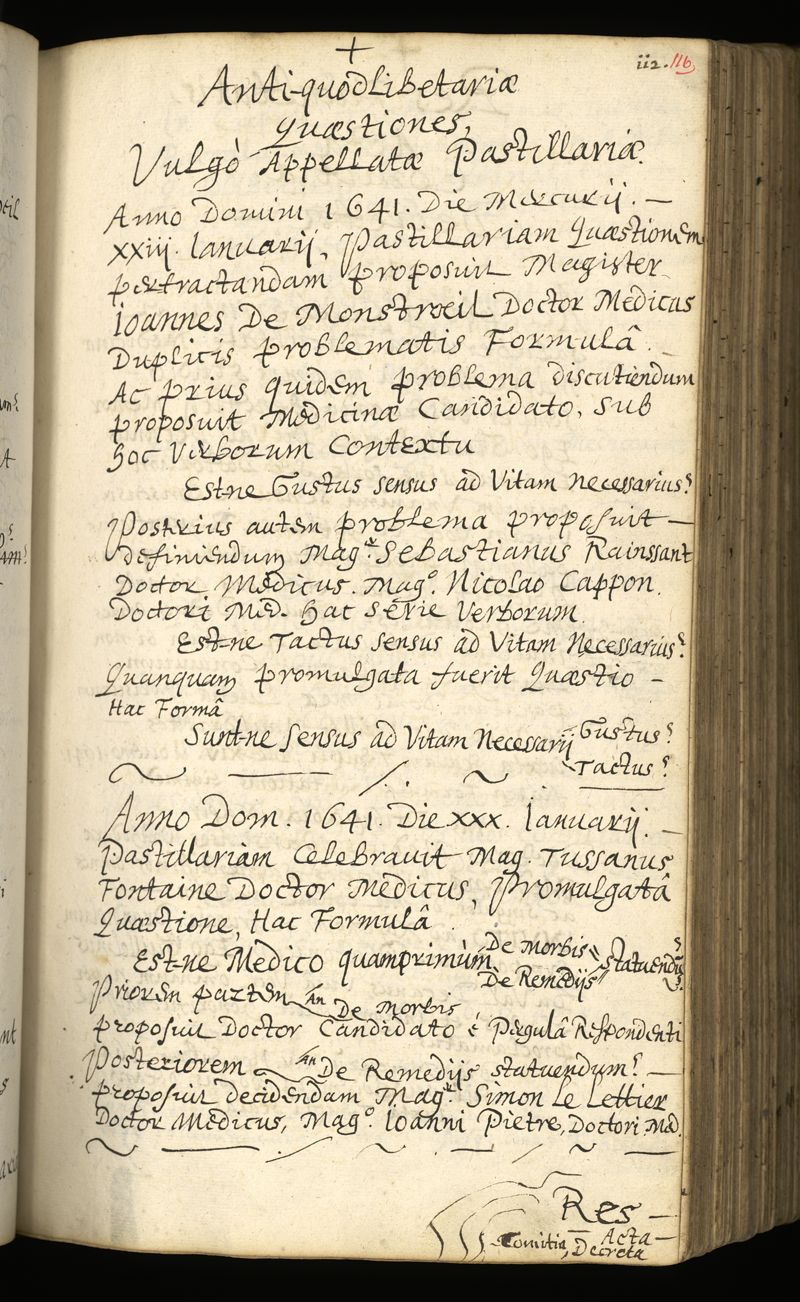 +
iiz. 116
Anti-quodlibetariæ
Quæstiones,
Vulgò Appellatæ Pastillariæ.
Anno Domini 1641. Die Mercurij. —
xxiij. Ianuarij, Pastillariam Quæstionem
pertractandam proposuit Magister
Ioannes De Monstroeil Doctor Medicus
Duplicis problematis Formulâ.
Ac prius quidem problema discutiendum
proposuit Medicinæ Candidato, sub
hoc Verborum Contextu
Est-ne Gustus sensus ad Vitam necessarius?
Posterius autem problema proposuit —
definiendum Magr. Sebastianus Rainssant
Doctor Medicus. Mago. Nicolao Cappon.
Doctori Med. hac serie Verborum.
Est-ne Tactus sensus ad Vitam Necessarius?
Quanquam promulgata fuerit Quæstio -
Hac Formâ
Sunt-ne sensus ad Vitam Necessarij Gustus?
Tactus?
Anno Dom. 1641. Die xxx. Ianuarij. —
Pastillariam Celebravit Mag. Tussanus
Fontaine Doctor Medicus, Promulgatâ
Quæstione, Hac Formulâ.
Est-ne Medico quamprimùm De Morbis statuendũ?
De Remedijs
Priorem partem An De Morbis,
proposuit Doctor Candidato è Pergulâ Respondenti
Posteriorem an De Remedijs statuendum? —
proposuit decidendam Magr. Simon Le Lettier
Doctor Medicus, Mago. Ioanni Pietre, Doctori Med.
Res —
Acta —
Comitia, Decreta